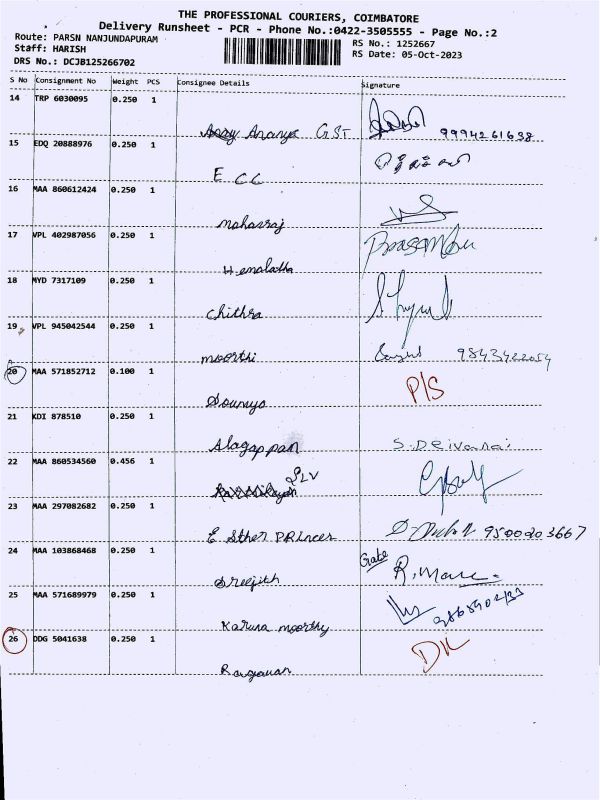 THE PROFESSIONAL COURIERS, COIMBATORE
Delivery Runsheet - PCR - Phone No.:0422-3505555 - Page No.:2
Route: PARSN NANJUNDAPURAM
Staff: HARISH
RS No.: 1252667
DRS No.: DCJB125266702
RS Date: 05-Oct-2023
S No Consignment No Weight PCS Consignee Details Signature
14 TRP 6030095 0.250 1
Ananya GST 9994261638
15 EDQ 20888976 0.250 1
E CC
16 MAA 860612424 0.250 1
maharaj
17 VPL 402987056 0.250 1
Hemalatha
18 MYD 7317109 0.250 1
Chithra
19 VPL 945042544 0.250 1
moorthi
20 MAA 571852712 0.100 1 P/S
Soumya
21 KDI 878510 0.250 1
Alagappan S. Deivanai
22 MAA 860534560 0.456 1
SLV
23 MAA 297082682 0.250 1
Esther PRinces 9500203667
24 MAA 103868468 0.250 1 Gate
Sreejith
25 MAA 571689979 0.250 1
Karuna moorthy
26 DDG 5041638 0.250 1 DK
Ragavan